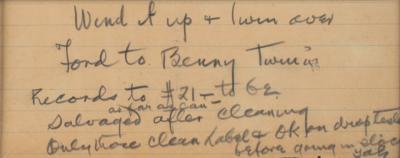 Wind it up & turn over
Ford to Benny Twin's
Records to #21 - to be
as far as can
Salvaged after cleaning
Only those clean Label & OK on drop tests
before going in